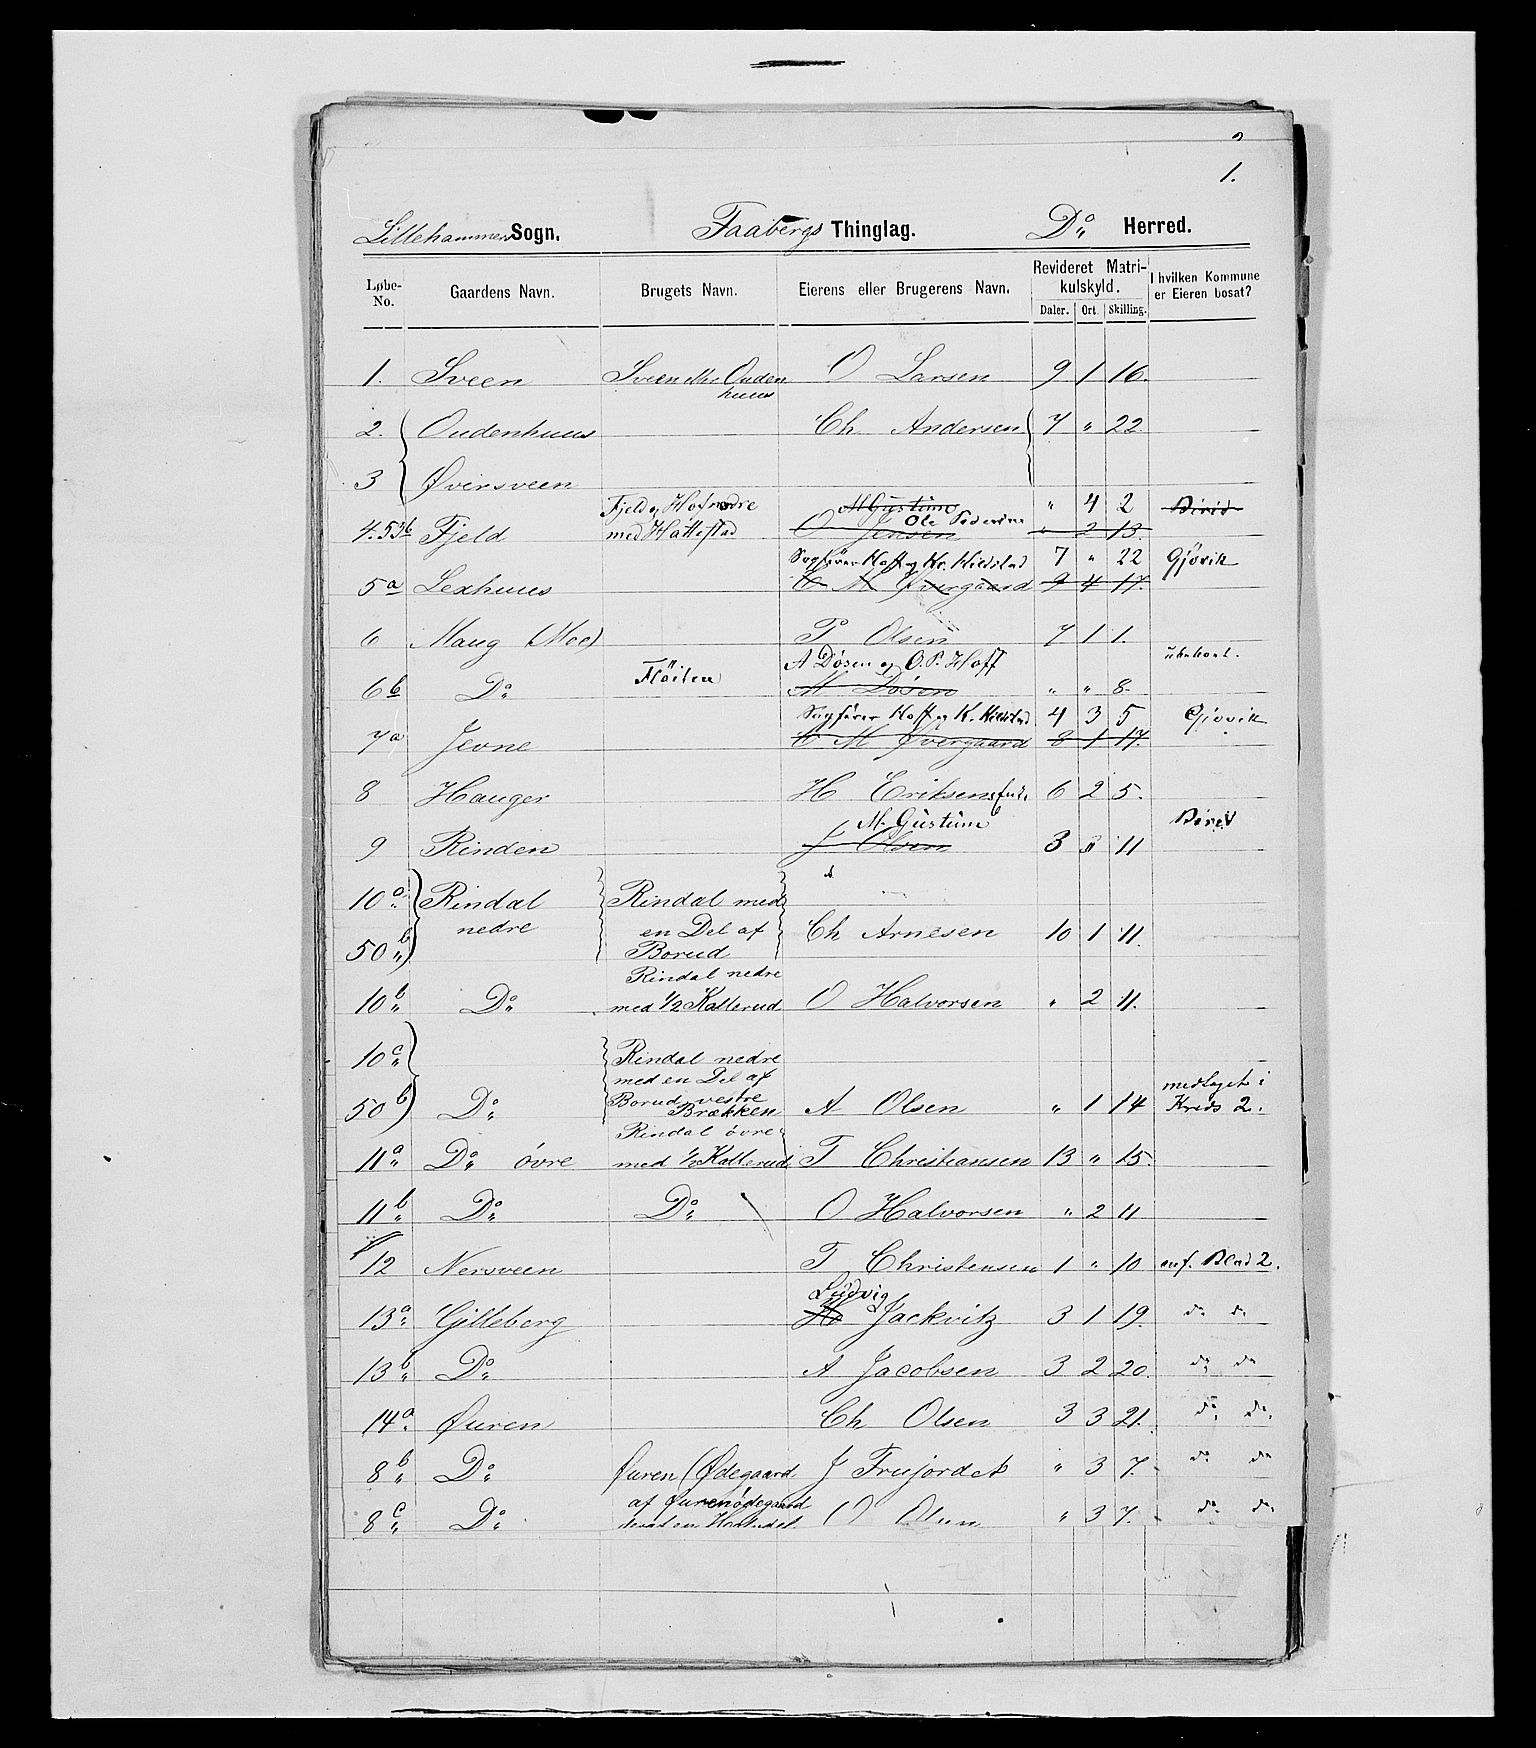 2
1.
Lillehammer Sogn. Faabergs Thinglag. Do Herred.
Løbe-No. Gaardens Navn. Brugets Navn. Eierens eller Brugerens Navn. Revideret Matrikulskyld. I hvilken Kommune er Eieren bosat?
Daler. Ort. Skilling.
1. Sveen Sveen Ouden O Larsen 9 1 16.
huus
2. Oudenhuus Ch Andersen 7 " 22.
3 Øversveen
Fjeld og Hof nedre M Gustum " 4 2 Birid
Ole Pedersen
4.53b Fjeld med Hattestad O Jensen " 2 13.
Sagfører Hoff og Kr. Hildstad 7 " 22 Gjøvik
5a Lexhuus C M Øvergaard 9 4 17.
6 Maug (Moe) P Olsen 7 1 1.
A Døsen og O. P. Hoff ubekont.
6b Do Fløiten M Døsen " " 8.
Sagfører Hoff og K. Hildstad 4 3 5 Gjøvik
7a Jevne C M Øvergaard 8 1 17.
8 Hauger H Eriksen 6 2 5.
M. Gustum Bired
9 Rinden J Olsen 3 11
10a Rindal Rindal med
nedre en Del af Ch Arnesen 10 1 11.
50b Borud
Rindal nedre
10b Do med 1/2 Kallerud O Halvorsen " 2 11.
10c Rindal nedre
med en Del af
Borud vestre medtaget i
50b Do Brækken A Olsen " 1 14 Kreds 2.
Rindal øvre
11a Do øvre med 1/2 Kallerud T Christiansen 13 " 15.
11b Do Do O Halvorsen " 2 11
12 Nersveen T Christensen 1 " 10 anf. Blad 2.
Ludvig
13a Gilleberg H Jackvitz 3 1 19. do do
13b Do A Jacobsen 3 2 20. do do
14a Øuren Ch Olsen 3 3 21. do do
8b Do Øuren (Ødegaard J Frujordet " 3 7. do do
af Øurenødegaard
8c Do O Olsen " 3 7. do do